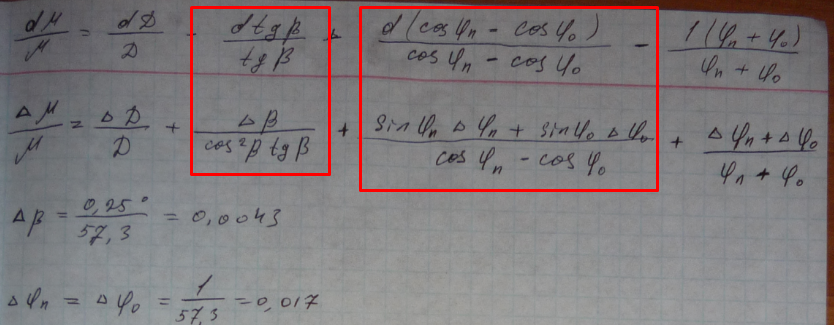 dμ/μ = dD/D - dtgβ/tgβ + d(cosφₙ - cosφ₀)/(cosφₙ - cosφ₀) - 1(φₙ + φ₀)/(φₙ + φ₀)
Δμ/μ = ΔD/D + Δβ/(cos²β tgβ) + (sinφₙ Δφₙ + sinφ₀ Δφ₀)/(cosφₙ - cosφ₀) + (Δφₙ + Δφ₀)/(φₙ + φ₀)
Δβ = 0,25°/57,3 = 0,0043
Δφₙ = Δφ₀ = 1/57,3 = 0,017